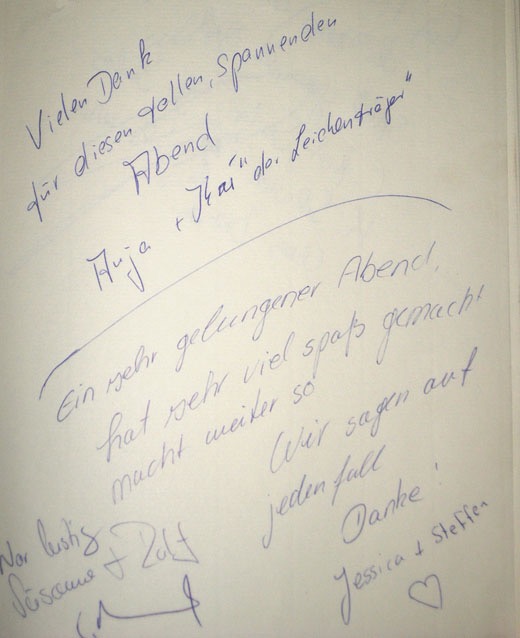 Vielen Dank
für diesen tollen, spannenden
Abend
Anja + "Kai" der Leichenträger"
Ein sehr gelungener Abend,
hat sehr viel spaß gemacht
macht weiter so
Wir sagen auf
jeden fall
Danke!
Jessica + Steffen
♡
War lustig
Susanne + Ralf